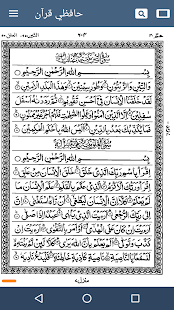 حافظي قرآن
بِسْمِ اللهِ الرَّحْمٰنِ الرَّحِيْمِ
وَالتِّيْنِ وَالزَّيْتُوْنِ۝ وَطُوْرِ سِيْنِيْنَ۝ وَهٰذَا الْبَلَدِ الْاَمِيْنِ۝ لَقَدْ
خَلَقْنَا الْاِنْسَانَ فِيْۤ اَحْسَنِ تَقْوِيْمٍ۝ ثُمَّ رَدَدْنٰهُ اَسْفَلَ سٰفِلِيْنَ۝ اِلَّا
الَّذِيْنَ اٰمَنُوْا وَعَمِلُوا الصّٰلِحٰتِ فَلَهُمْ اَجْرٌ غَيْرُ مَمْنُوْنٍ۝ فَمَا
يُكَذِّبُكَ بَعْدُ بِالدِّيْنِ۝ اَلَيْسَ اللهُ بِاَحْكَمِ الْحٰكِمِيْنَ۝
بِسْمِ اللهِ الرَّحْمٰنِ الرَّحِيْمِ
اِقْرَاْ بِاسْمِ رَبِّكَ الَّذِيْ خَلَقَ۝ خَلَقَ الْاِنْسَانَ مِنْ عَلَقٍ۝
اِقْرَاْ وَرَبُّكَ الْاَكْرَمُ۝ الَّذِيْ عَلَّمَ بِالْقَلَمِ۝ عَلَّمَ الْاِنْسَانَ مَا لَمْ
يَعْلَمْ۝ كَلَّاۤ اِنَّ الْاِنْسَانَ لَيَطْغٰۤى۝ اَنْ رَّاٰهُ اسْتَغْنٰى۝ اِنَّ اِلٰى رَبِّكَ
الرُّجْعٰى۝ اَرَءَيْتَ الَّذِيْ يَنْهٰى۝ عَبْدًا اِذَا صَلّٰى۝ اَرَءَيْتَ اِنْ
كَانَ عَلَى الْهُدٰۤى۝ اَوْ اَمَرَ بِالتَّقْوٰى۝ اَرَءَيْتَ اِنْ
كَذَّبَ وَتَوَلّٰى۝ اَلَمْ يَعْلَمْ بِاَنَّ اللهَ يَرٰى۝ كَلَّا لَئِنْ لَّمْ يَنْتَهِ
لَنَسْفَعًۢا بِالنَّاصِيَةِ۝ نَاصِيَةٍ كَاذِبَةٍ خَاطِئَةٍ۝ فَلْيَدْعُ نَادِيَهٗ۝